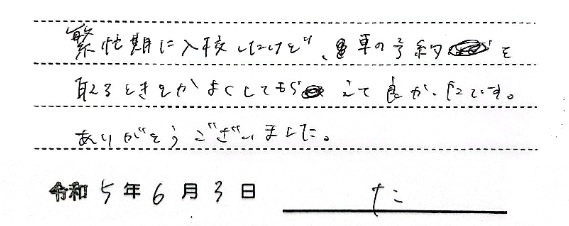 繁忙期に入校したけど、車の予約を
取るときをかよくしてもらえて良かったです。
ありがとうございました。
令和5年6月3日 た